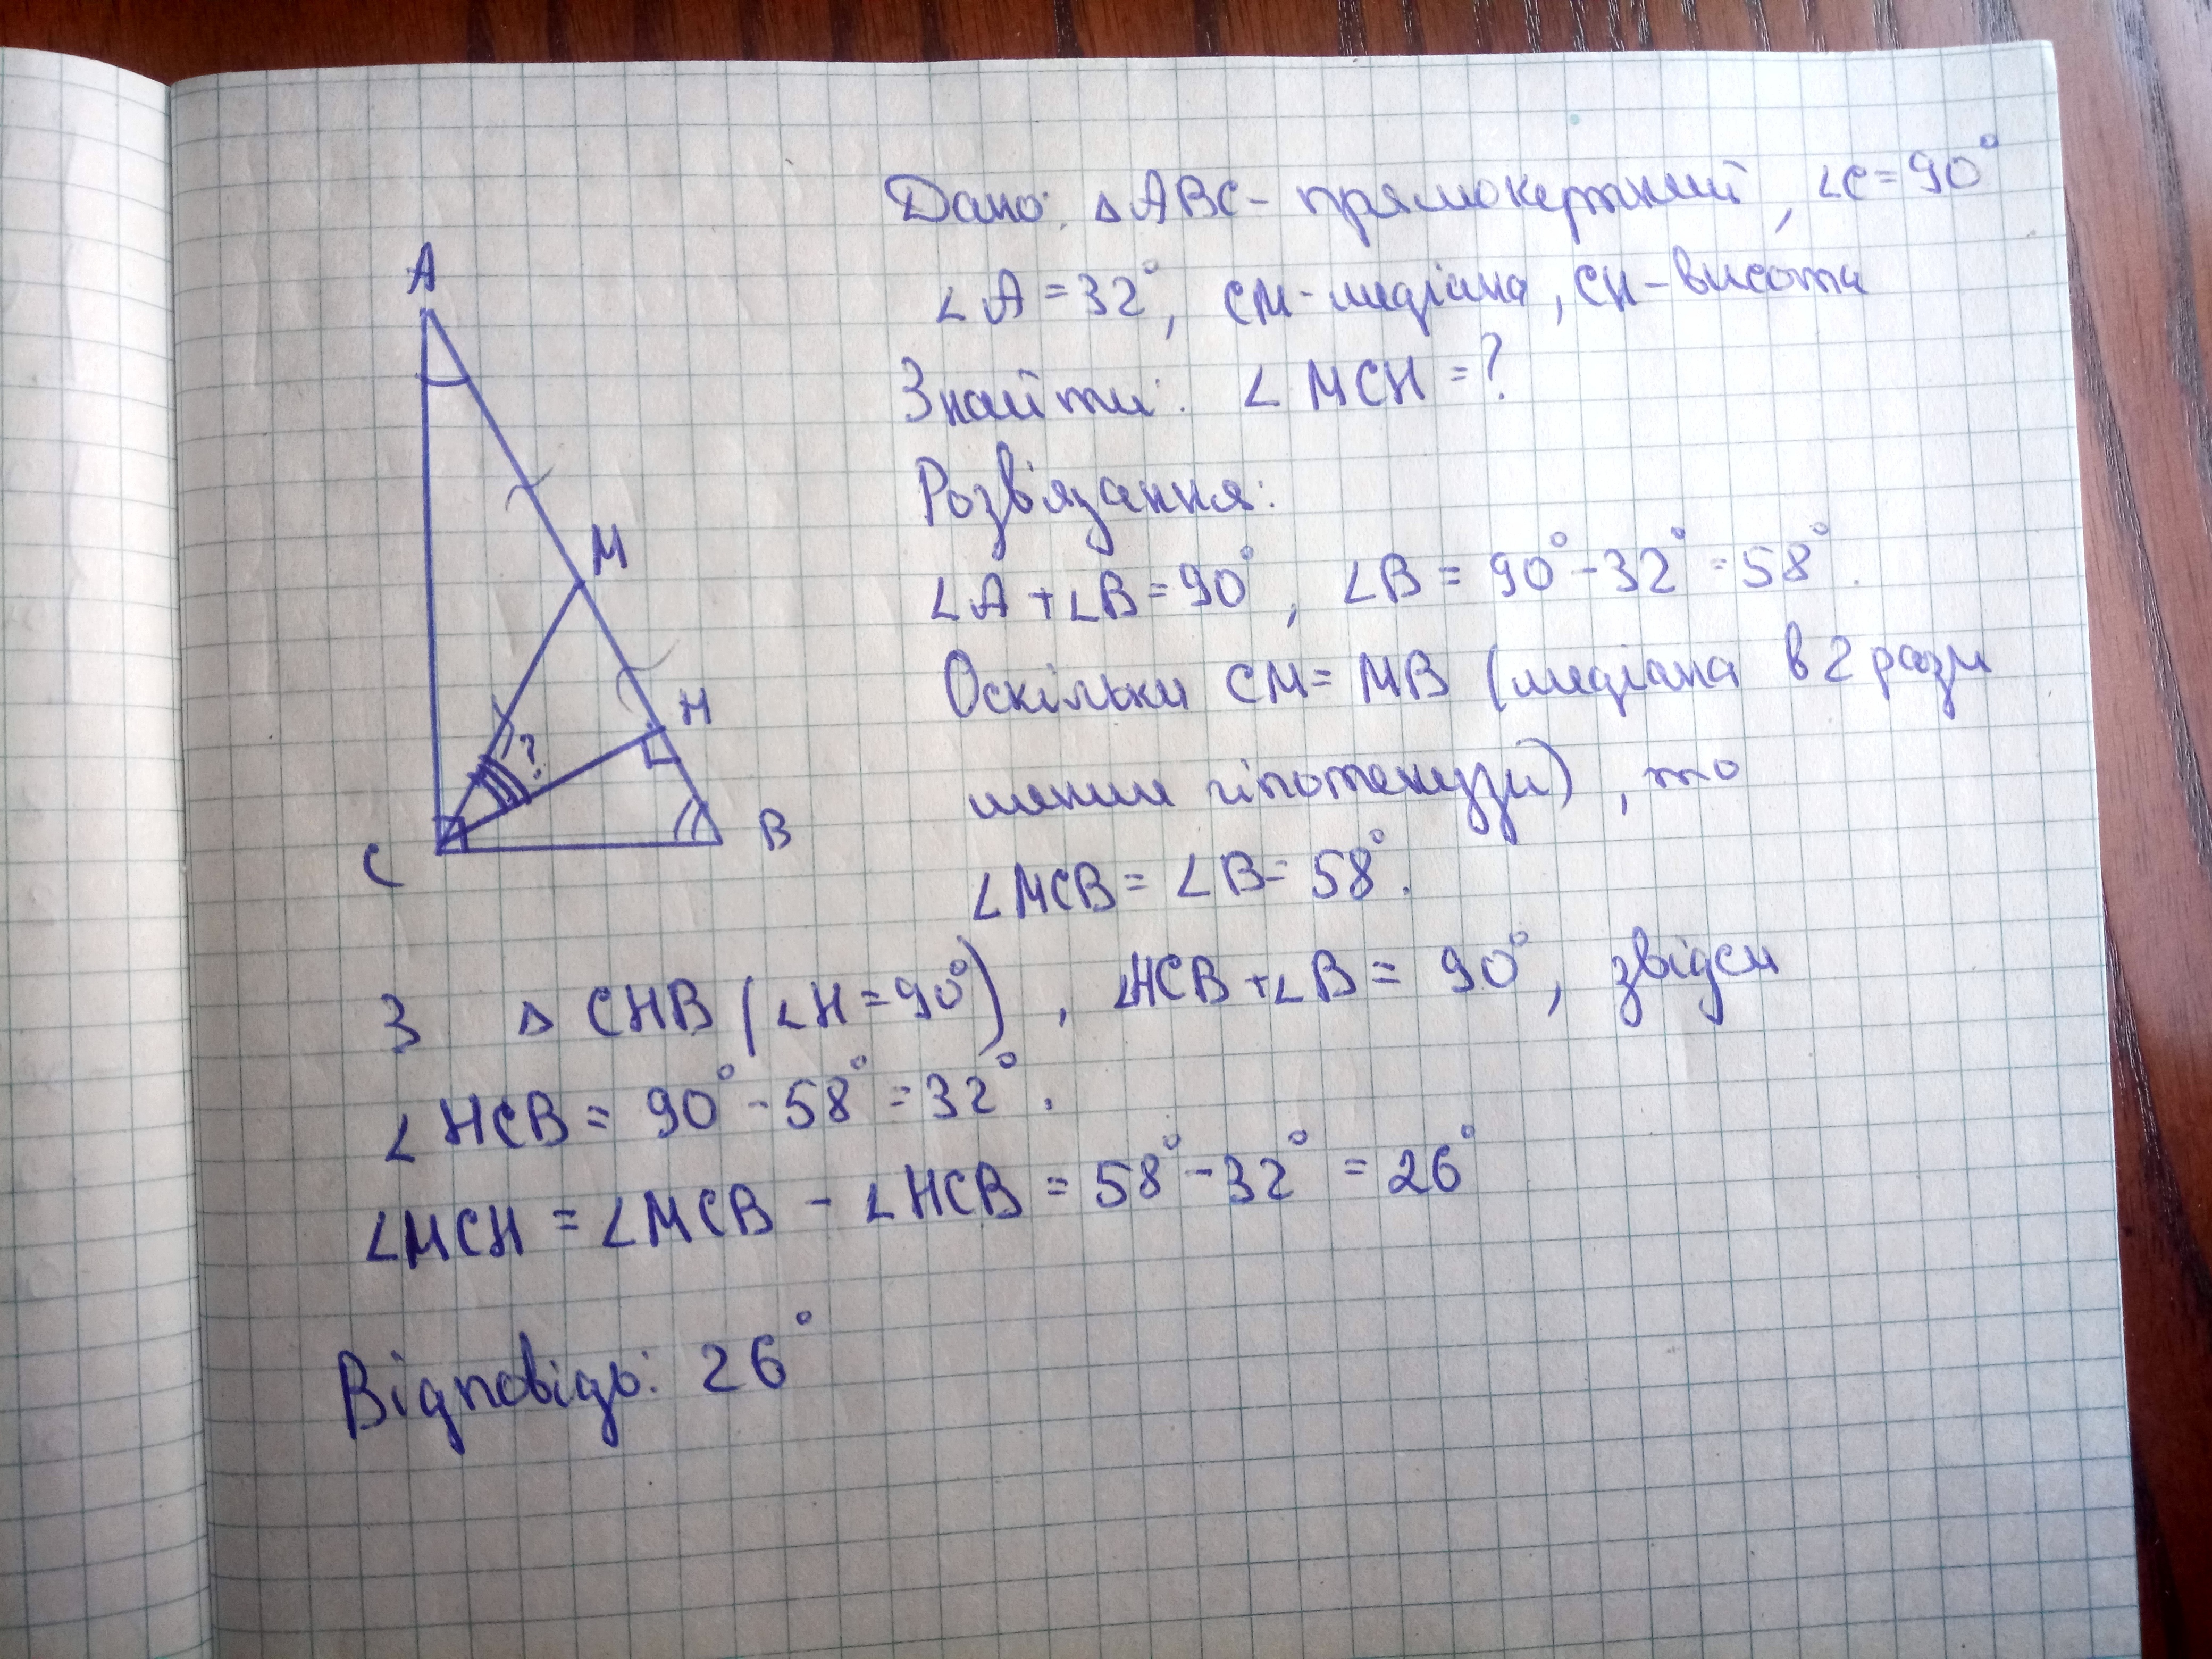 Дано: △ABC - прямокутний, ∠C = 90°
∠A = 32°, CM - медіана, CH - висота
Знайти: ∠MCH = ?
Розв'язання:
∠A + ∠B = 90°, ∠B = 90° - 32° = 58°.
Оскільки CM = MB (медіана в 2 рази
менша гіпотенузи), то
∠MCB = ∠B = 58°.
З △CHB (∠H = 90°), ∠HCB + ∠B = 90°, звідси
∠HCB = 90° - 58° = 32°.
∠MCH = ∠MCB - ∠HCB = 58° - 32° = 26°
Відповідь: 26°
A
M
H
?
C
B